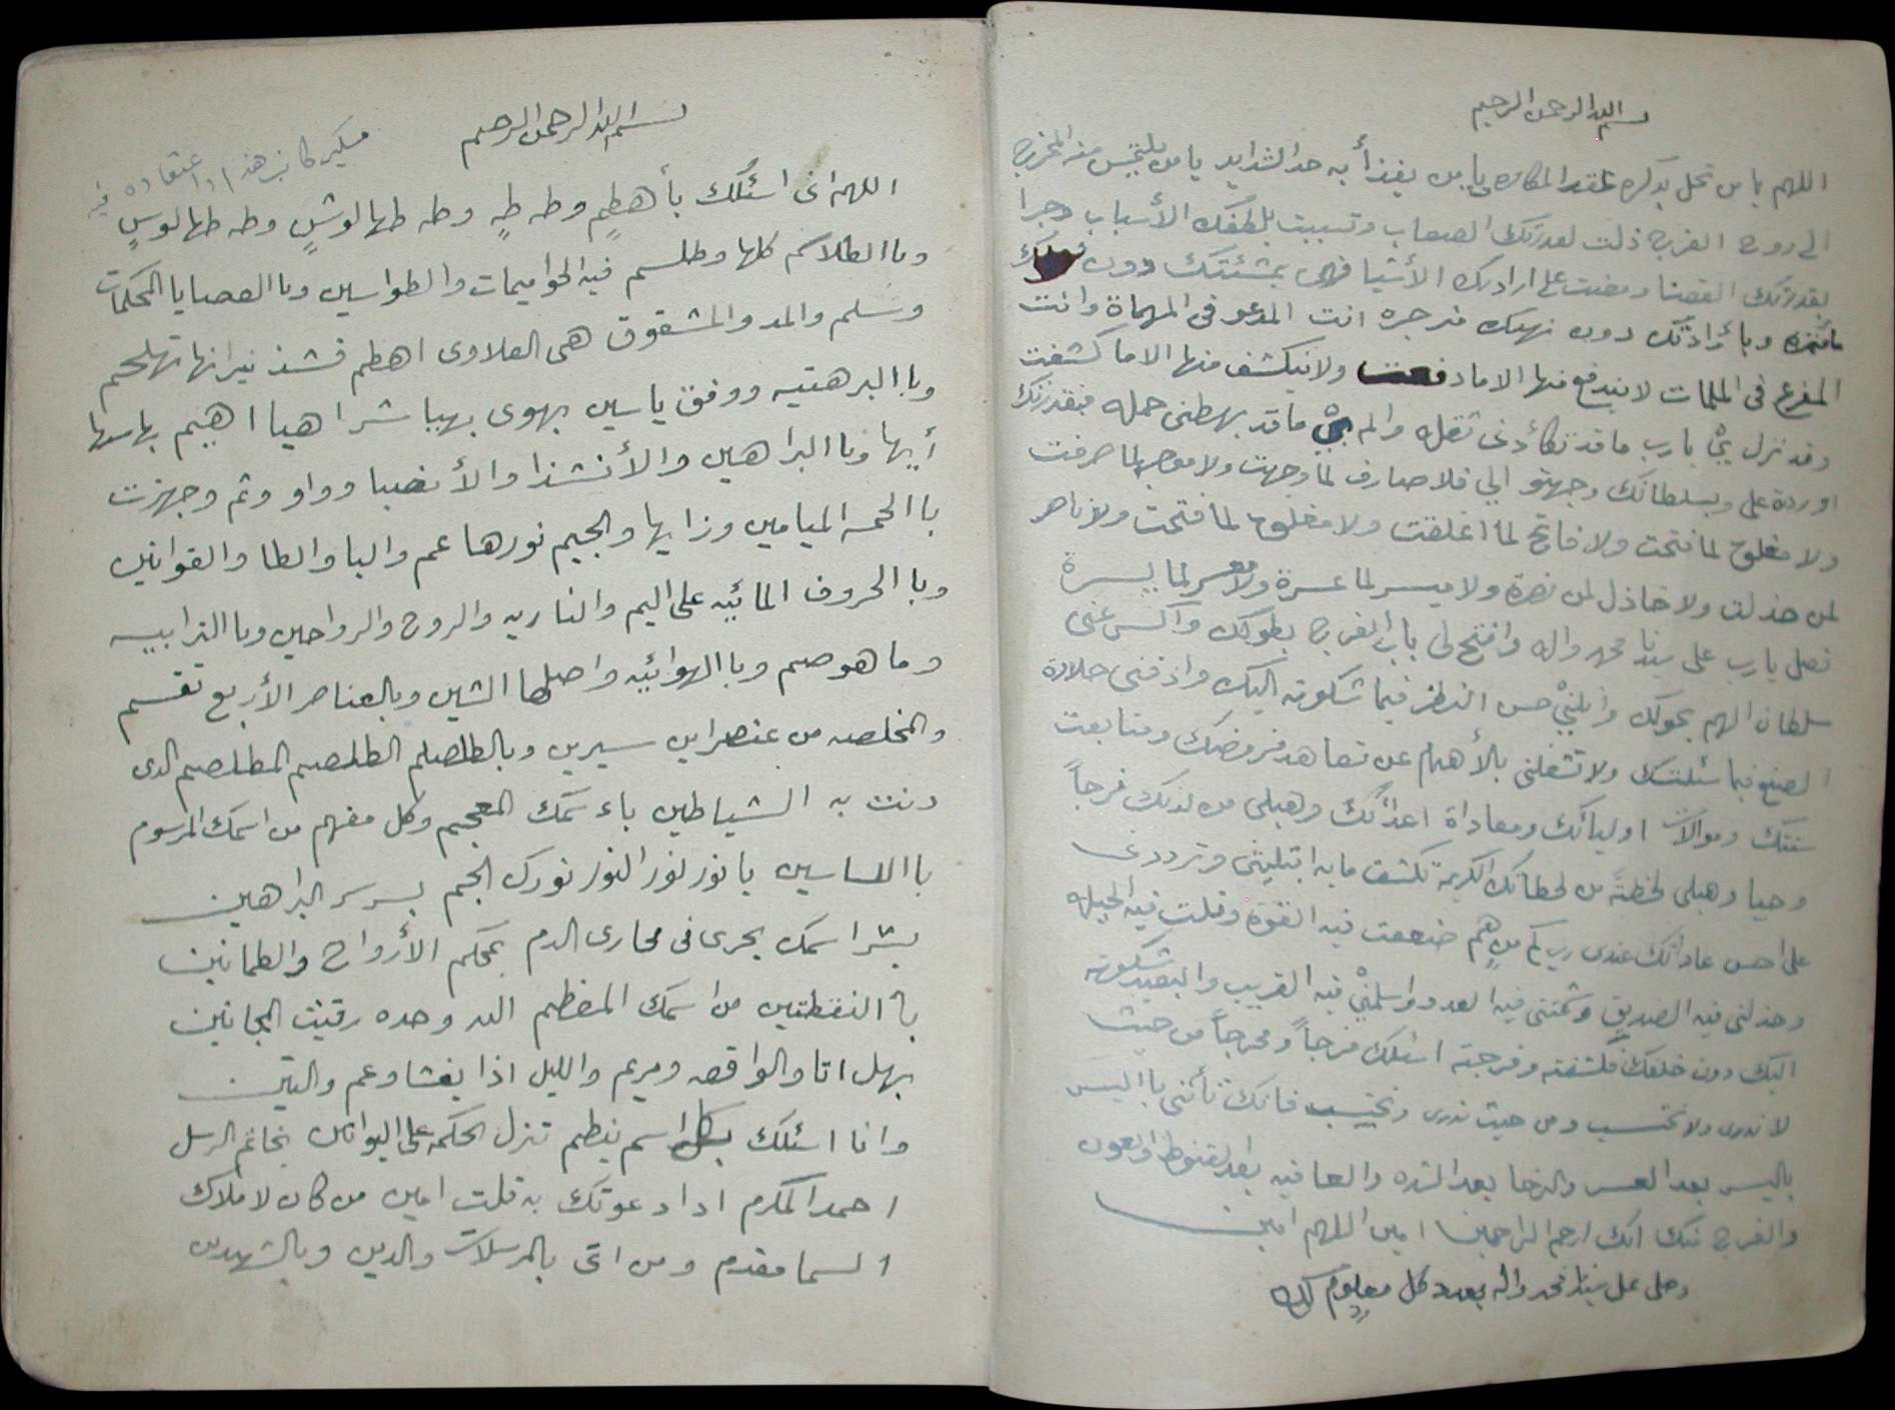 بسم الله الرحمن الرحيم
اللهم يا من تحل بذكره عقد المكاره يا من يفثأ به حد الشدايد يا من يلتمس منه المخرج
الى روح الفرج ذلت لقدرتك الصعاب وتسببت بلطفك الأسباب وجرا
بقدرتك القضا ومضت على ارادتك الأشيا فهى بمشئتك دون قولك
مأتمره وبأرادتك دون نهيك منزجره انت المدعو فى المهماة وانت
المفزع فى الملمات لا يندفع منها الا ما دفعت ولا ينكشف منها الا ما كشفت
وقد نزل بيْ يا رب ما قد تكأدنى ثقله والم بيْ ما قد بهطنى حمله فبقدرتك
اوردة على وبسلطانك وجهتو الي فلا صارف لما وجهت ولا موجه لما صرفت
ولا مغلوق لما فتحت ولا فاتح لما اغلقت ولا مغلوق لما فتحت ولا ناصر
لمن خذلت ولا خاذل لمن نصرة ولا ميسر لما عسرة ولا معسر لما يسرة
فصل يا رب على سيدنا محمد واله وافتح لى باب الفرج بطولك واكسر عنى
سلطان الهم بحولك وانلنيْ حسن النظر فيما شكوته اليك واذقنى حلاوة
الصنع فيما سئلتك ولا تشغلنى بالأهمام عن تعاهد فروضك ومتابعت
سنتك وموالات اوليائك ومعاداة اعدائك وهبلى من لدنك فرجاً
وحيا وهبلى لحظتاً من لحظاتك الكريمة تكشف ما به ابتليتنى وترددنى
على احسن عاداتك عندى رب كم من هم ضعفت فيه القوة وقلت فيه الحيله
وخذلنى فيه الصديق وشمتنى فيه العدو واسلمنيْ فيه القريب والبعيد شكوته
اليك دون خلقك فكشفته وفرجته اسئلك فرجاً ومخرجاً من حيث
لا ندرى ولا نحتسب ومن حيث ندرى ونحتسب فانك تأتنى باليسر
باليسر بعد العسر والرخا بعد الشده والعافيه بعد القنوط والعون
والفرج منك انك ارحم الراحمين امين اللهم امين
وصلى على سيدنا محمد واله بعدد كل معلوم لك
بسم الله الرحمن الرحيم
مسكين كاتب هذا واعتقاده فيه
اللهم انى اسئلك بأهطمٍ وطه طهٍ وطه طهالوشٍ وطه طهالوسٍ
وباالطلاسم كلها وطلسم فيه الحواميمات والطواسين وباالعصايا المحكمات
وسَلم والمد والمشقوق هى العلاوى اهطم فشذ نيرانها تهلحم
وباالبرهتيه ووفق ياسين يهوى بهيا شراهيا اهيم بهاسها
أيها وباالبراهين والأنشذا والأنضبا وواو وثم وجهزت
باالخمسه الميامين وزايها والجيم نورها عم واليا والطا والقوانين
وباالحروف المائيه على اليم والناريه والروح والرواحين وباالترابيه
وما هو صم وباالهوائيه واصلها الشين وبالعناصر الأربع تقسم
والمخلصه من عنصراين سيرين وبالطلصلم الطلصم المطلصم الذى
دنت به الشياطين باءسمك المعجم وكل مفهم من اسمك المرسوم
باالساسين يا نور نور النور نورك الجم بسر سر البراهين
بشرا اسمك يجرى فى مجارى الدم بمحكم الأرواح والطمانين
باالنقطتين من اسمك المعظم الله وحده رقيت المجانين
بهل اتا والواقعه ومريم والليل اذا يغشا وعم والتين
وانا اسئلك بكل اسم ينظم تنزل الحكمه على اليوانين بخاتم الرسل
احمد المكرم اذا دعوتك به قلت امين من كان لاملاك
السما مقدم ومن اتى بالمرسلات والدين وبالشهدين